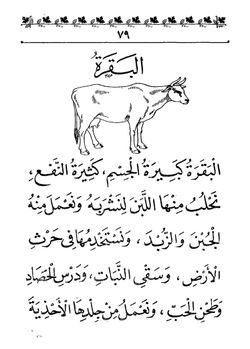 ٧٩
البَقَرَةُ
البَقَرَةُ كَبِيرَةُ الْجِسْمِ، كَثِيرَةُ النَّفْعِ،
نَحْلُبُ مِنْهَا اللَّبَنَ لِنَشْرَبَهُ وَنَعْمَلَ مِنْهُ
الْجُبْنَ وَالزُّبْدَ، وَنَسْتَخْدِمُهَا فِي حَرْثِ
الْأَرْضِ، وَسَقْيِ النَّبَاتِ، وَدَرْسِ الْحَصَادِ
وَطَحْنِ الْحَبِّ، وَنَعْمَلُ مِنْ جِلْدِهَا الْأَحْذِيَةَ